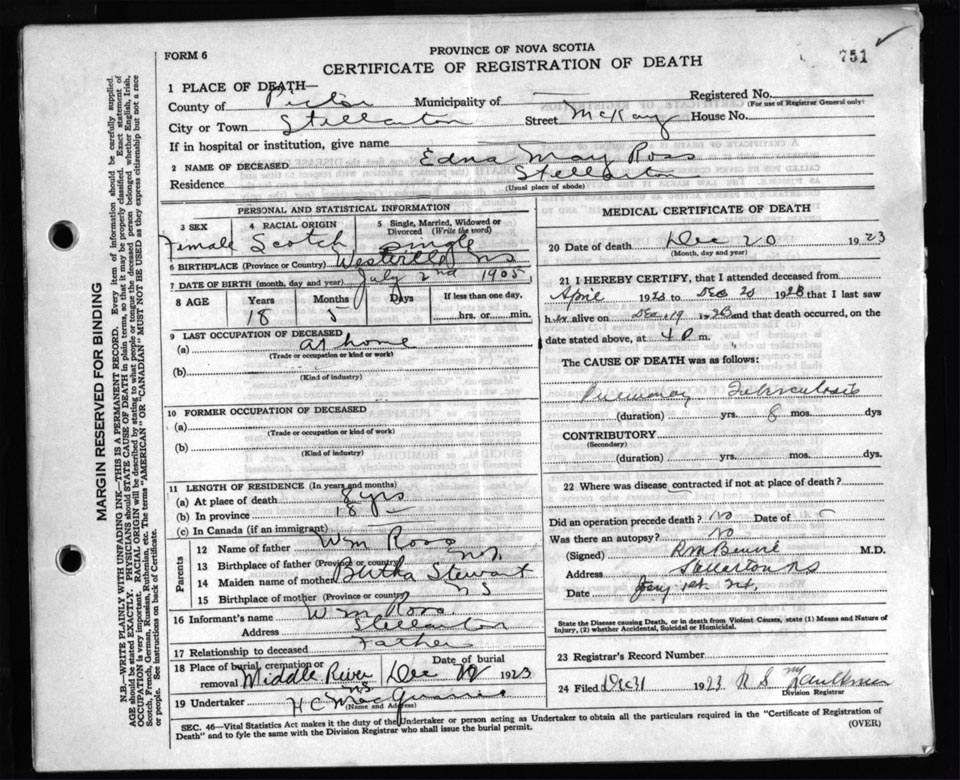 751
FORM 6
PROVINCE OF NOVA SCOTIA
CERTIFICATE OF REGISTRATION OF DEATH
MARGIN RESERVED FOR BINDING
N.B.—WRITE PLAINLY WITH UNFADING INK—THIS IS A PERMANENT RECORD. Every item of information should be carefully supplied.
AGE should be stated EXACTLY. PHYSICIANS should STATE CAUSE OF DEATH in plain terms, so that it may be properly classified. Exact statement of
OCCUPATION is very important. RACIAL ORIGIN will be described by stating to what people or tongue the deceased person belonged whether English, Irish,
Scotch, French, German, Russian, Ruthenian, etc. The terms "AMERICAN" OR "CANADIAN" MUST NOT BE USED as they express citizenship but not a race
or people. See instructions on back of Certificate.
1 PLACE OF DEATH—
County of Pictou Municipality of — Registered No.
(For use of Registrar General only)
City or Town Stellarton Street McKay House No.
If in hospital or institution, give name
2 NAME OF DECEASED Edna May Ross
Residence Stellarton
(Usual place of abode)
PERSONAL AND STATISTICAL INFORMATION
3 SEX 4 RACIAL ORIGIN 5 Single, Married, Widowed or Divorced (Write the word)
Female Scotch single
6 BIRTHPLACE (Province or Country) Westville NS
7 DATE OF BIRTH (month, day and year) July 2nd 1905
8 AGE Years Months Days If less than one day,
18 5 hrs. or min.
9 LAST OCCUPATION OF DECEASED
(a) at home
(Trade or occupation or kind or work)
(b)
(Kind of industry)
10 FORMER OCCUPATION OF DECEASED
(a)
(Trade or occupation or kind of work)
(b)
(Kind of industry)
11 LENGTH OF RESIDENCE (In years and months)
(a) At place of death 8 yrs
(b) In province 18
(c) In Canada (if an immigrant)
Parents
12 Name of father Wm Ross
13 Birthplace of father (Province or country) NS
14 Maiden name of mother Bertha Stewart
15 Birthplace of mother (Province or country) NS
16 Informant's name Wm Ross
Address Stellarton
17 Relationship to deceased Father
18 Place of burial, cremation or removal Middle River NS Date of burial Dec 1923
19 Undertaker H C
(Name and Address)
MEDICAL CERTIFICATE OF DEATH
20 Date of death Dec 20 1923
(Month, day and year)
21 I HEREBY CERTIFY, that I attended deceased from
April 1923 to Dec 20 1923 that I last saw
her alive on Dec. 19 1923 and that death occurred, on the
date stated above, at 4 P m.
The CAUSE OF DEATH was as follows:
Pulmonary Tuberculosis
(duration) yrs. 8 mos. dys
CONTRIBUTORY
(Secondary)
(duration) yrs. mos. dys.
22 Where was disease contracted if not at place of death?
Did an operation precede death? no Date of —
Was there an autopsy? no
(Signed) M.D.
Address Stellarton NS
Date
State the Disease causing Death, or in death from Violent Causes, state (1) Means and Nature of
Injury, (2) whether Accidental, Suicidal or Homicidal.
23 Registrar's Record Number
24 Filed Dec 31 1923 R S
Division Registrar
SEC. 46—Vital Statistics Act makes it the duty of the Undertaker or person acting as Undertaker to obtain all the particulars required in the "Certificate of Registration of
Death" and to fyle the same with the Division Registrar who shall issue the burial permit. (OVER)